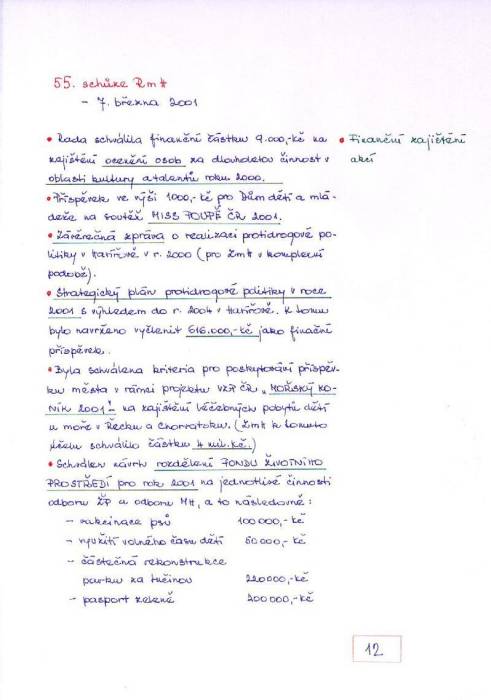 55. schůze Rm*
- 7. března 2001
• Rada schválila finanční částku 9.000,-Kč na
zajištění ocenění osob za dlouholetou činnost v
oblasti kultury a talentů roku 2000.
• Finanční zajištění
akcí
• Příspěvek ve výši 1000,-Kč pro Dům dětí a mlá-
deže na soutěž MISS POUPĚ ČR 2001.
• Závěrečná zpráva o realizaci protidrogové po-
litiky v Karviné v r. 2000 (pro Zm* v komplexní
podobě).
• Strategický plán protidrogové politiky v roce
2001 s výhledem do r. 2004 v Karviné. K tomu
bylo navrženo vyčlenit 616.000,-Kč jako finanční
příspěvek.
• Byla schválena kriteria pro poskytování příspěv-
ku města v rámci projektu VZP ČR „MOŘSKÝ KO-
NÍK 2001" na zajištění léčebných pobytů dětí
u moře v Řecku a Chorvatsku. (Zm* k tomuto
účelu schválilo částku 4 mil. Kč.)
• Schválen návrh rozdělení FONDU ŽIVOTNÍHO
PROSTŘEDÍ pro rok 2001 na jednotlivé činnosti
odboru ŽP a odboru MH, a to následovně:
- vakcinace psů 100 000,-Kč
- využití volného času dětí 50 000,-Kč
- částečná rekonstrukce
parku za 220 000,-Kč
- pasport zeleně 200 000,-Kč
12